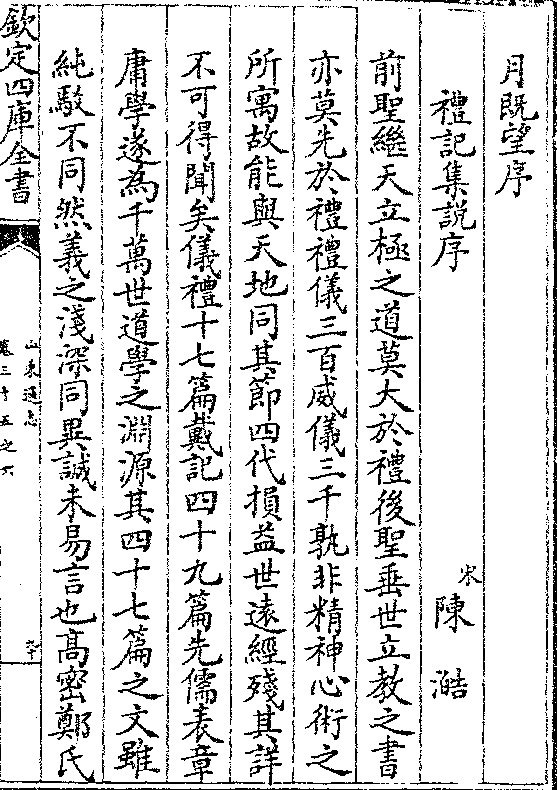 月既望序
禮記集説序
宋陳澔
前聖繼天立極之道莫大於禮後聖垂世立教之書
亦莫先於禮禮儀三百威儀三千孰非精神心術之
所寓故能與天地同其節四代損益世逺經殘其詳
不可得聞矣儀禮十七篇戴記四十九篇先儒表章
庸學遂為千萬世道學之淵源其四十七篇之文雖
純駁不同然義之淺深同異誠未易言也髙密鄭氏
欽定四庫全書
山東通志
卷三十五之六